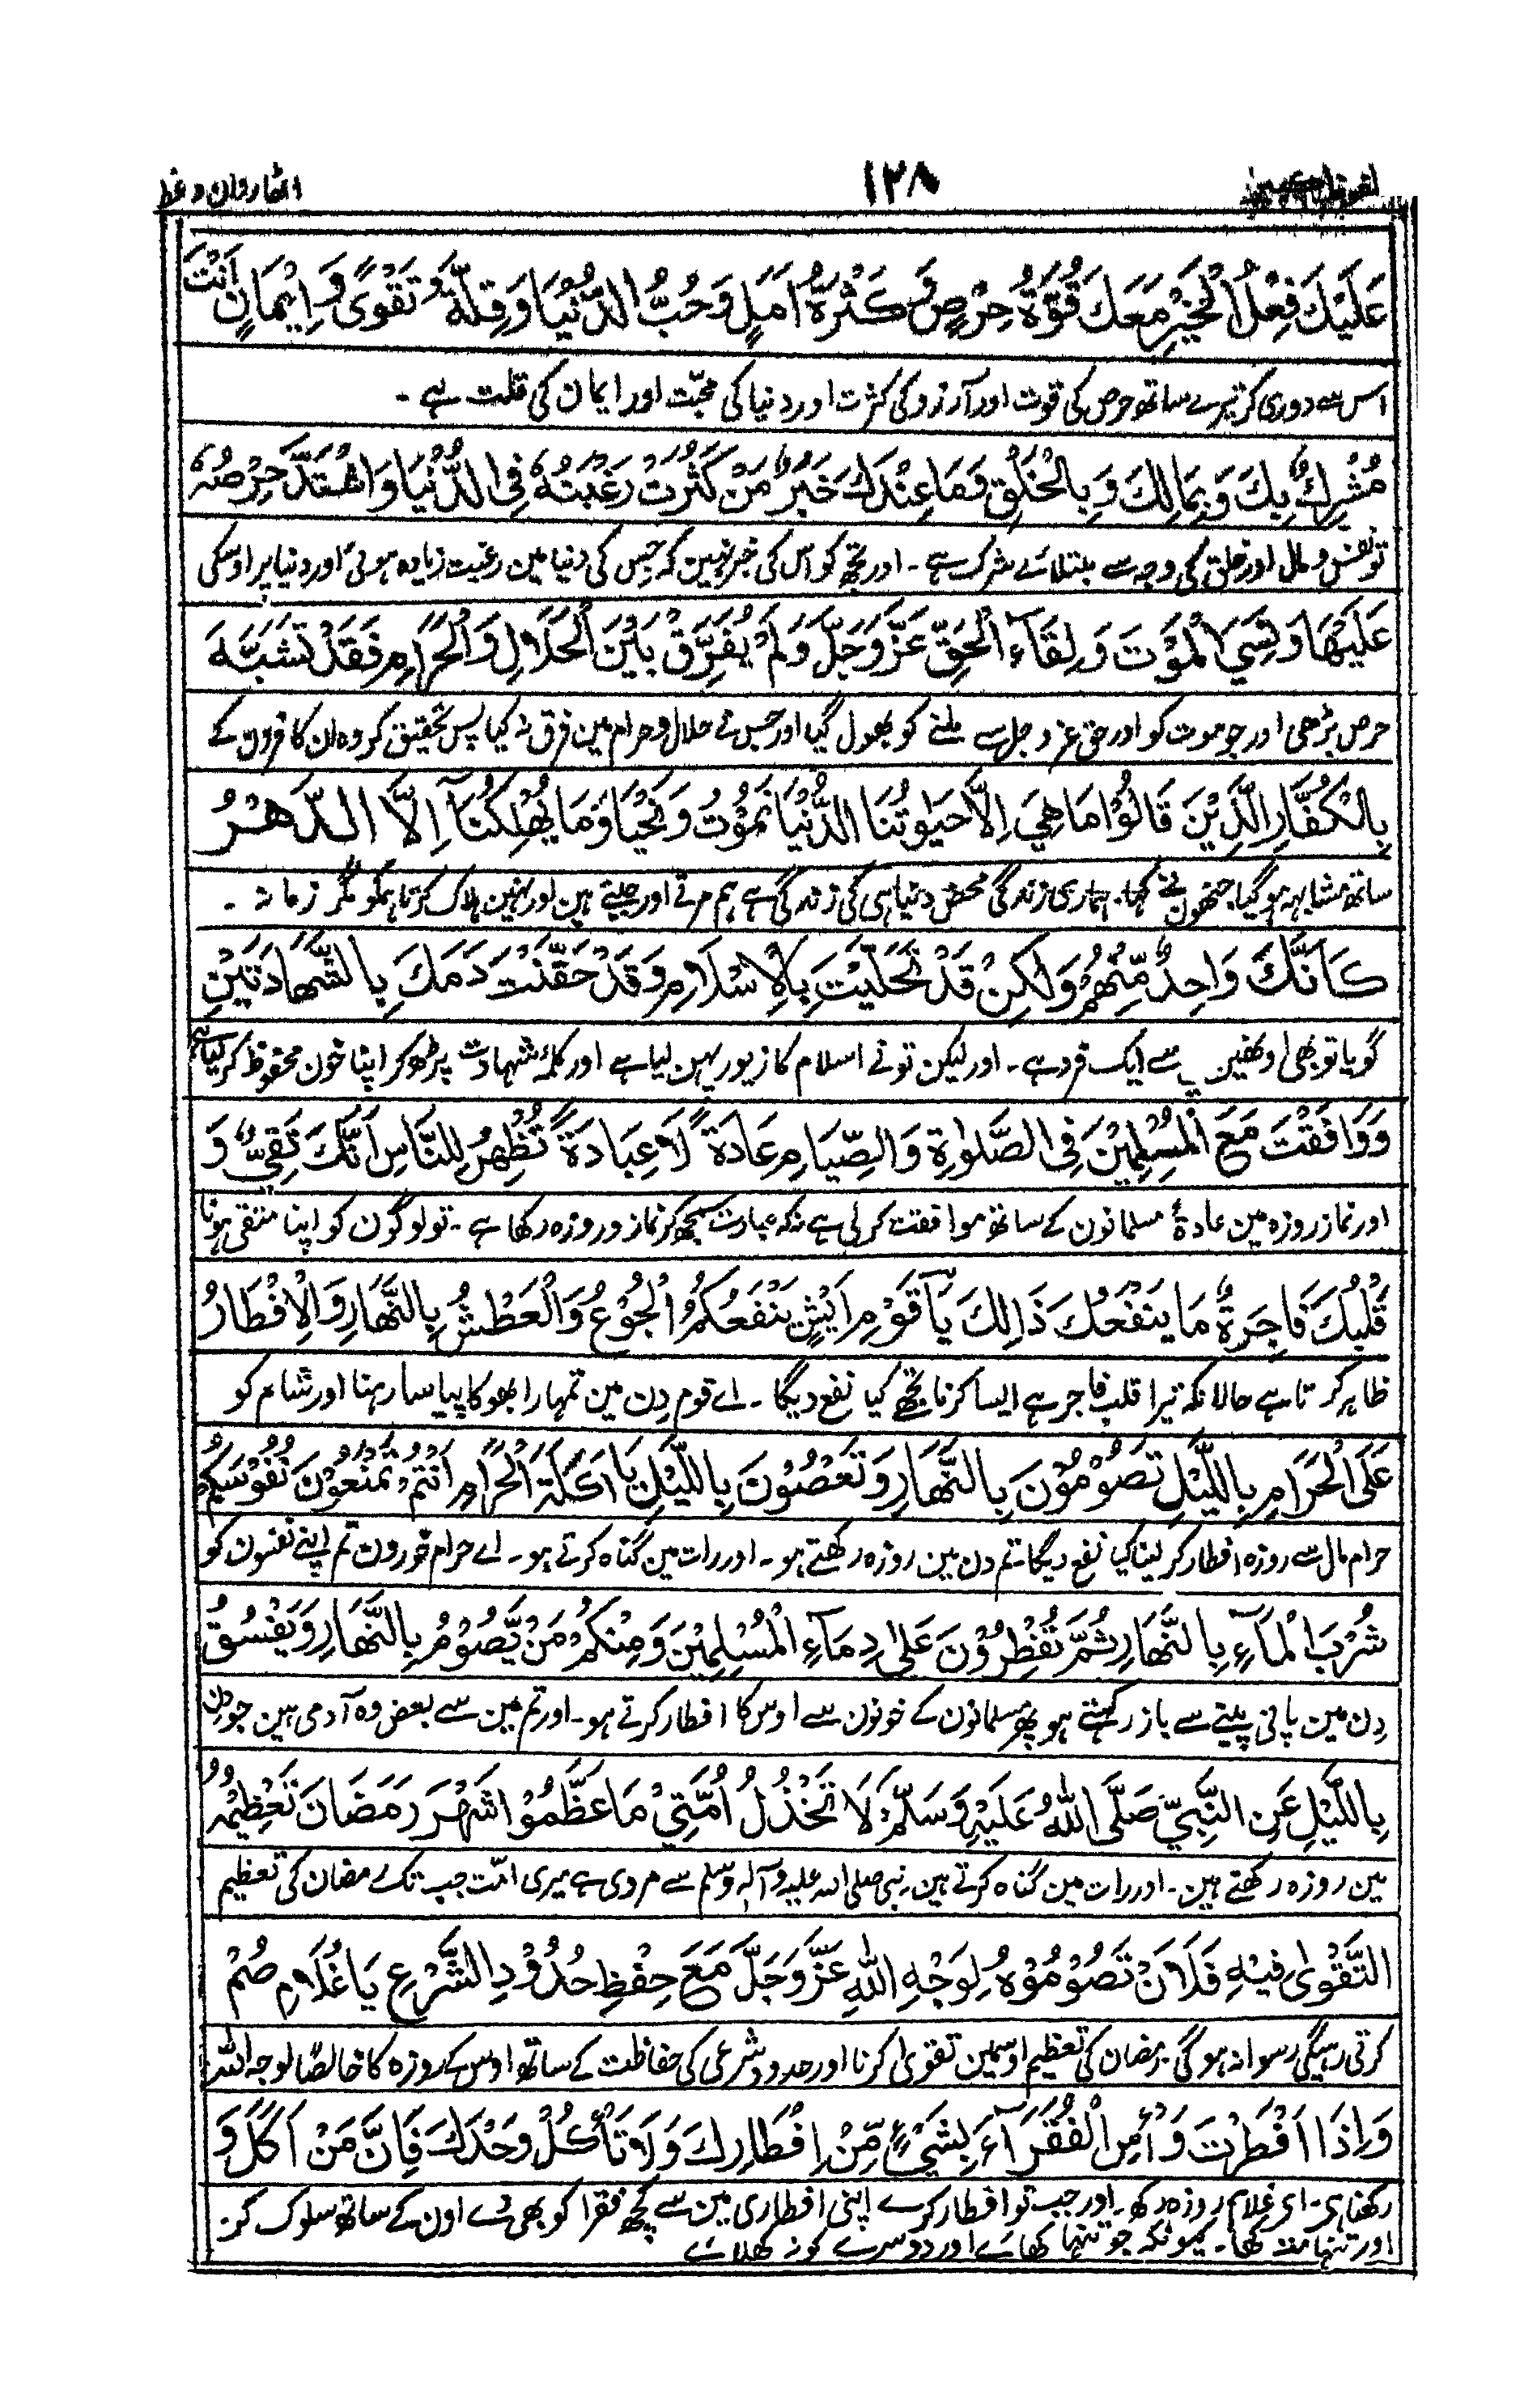 ١٢٨
اٹھاروان وعظ
عَلَيْكَ فِعْلُ الْخَيْرِ مَعَكَ قُوَّةُ حِرْصٍ وَكَثْرَةُ اَمَلٍ وَحُبُّ الدُّنْيَا وَقِلَّةُ تَقْوًى وَاِيْمَانٍ اَنْتَ
اس سے دوری کر تیرے ساتھ حرص کی قوت اور آرزو کی کثرت اور دنیا کی محبّت اور ایمان کی قلت ہے ۔
مُشْرِكٌ بِكَ وَبِمَالِكَ وَبِالْخَلْقِ وَمَا عِنْدَكَ خَبَرٌ مَنْ كَثُرَتْ رَغْبَتُهٗ فِی الدُّنْيَا وَاشْتَدَّ حِرْصُهٗ
تو نفس و مال اور خلق کی وجہ سے مبتلائے شرک ہے ۔ اور تجھ کو اس کی خبر نہین کہ جس کی دنیا مین رغبت زیادہ ہوئی اور دنیا پر اوسکی
عَلَيْهَا وَنَسِيَ الْمَوْتَ وَلِقَآءَ الْحَقِّ عَزَّوَجَلَّ وَلَمْ يُفَرِّقْ بَيْنَ الْحَلَالِ وَالْحَرَامِ فَقَدْ تَشَبَّهَ
حرص بڑھی اور جو موت کو اور حق عز وجل سے ملنے کو بھول گیا اور جس نے حلال و حرام مین فرق نہ کیا پس تحقیق کہ وہ ان کافرون کے
بِالْكُفَّارِ الَّذِيْنَ قَالُوْا مَا هِيَ اِلَّا حَيٰوتُنَا الدُّنْيَا نَمُوْتُ وَنَحْيَا وَمَا يُهْلِكُنَآ اِلَّا الدَّهْرُ
ساتھ مشابہہ ہو گیا جنھون نے کہا۔ ہماری زندگی محض دنیا ہی کی زندگی ہے ہم مرتے اور جیتے ہین اور نہین ہلاک کرتا ہمکو مگر زمانہ ۔
كَاَنَّكَ وَاحِدٌ مِّنْهُمْ وَلٰكِنْ قَدْ تَحَلَّيْتَ بِالْاِسْلَامِ وَقَدْ حَقَّنْتَ دَمَكَ بِالشَّهَادَتَيْنِ
گویا تو بھی اونھین سے ایک فرد ہے ۔ اور لیکن تو نے اسلام کا زیور پہن لیا ہے اور کلمہ شہادت پڑھ کر اپنا خون محفوظ کر لیا ہے
وَوَافَقْتَ مَعَ الْمُسْلِمِيْنَ فِی الصَّلٰوةِ وَالصِّيَامِ عَادَةً لَا عِبَادَةً تُظْهِرُ لِلنَّاسِ اَنَّكَ تَقِيٌّ وَ
اور نماز روزہ مین عادۃً مسلمانون کے ساتھ موافقت کر لی ہے نہ کہ عبادت سمجھ کر نماز و روزہ رکھا ہے ۔ تو لوگون کو اپنا متقی ہونا
قَلْبُكَ فَاجِرَةٌ مَا يَنْفَعُكَ ذَالِكَ يَآ قَوْمِ اَيْشٍ يَنْفَعُكُمُ الْجُوْعُ وَالْعَطْشُ بِالنَّهَارِ وَالْاِفْطَارُ
ظاہر کرتا ہے حالانکہ تیرا قلب فاجر ہے ایسا کرنا تجھے کیا نفع دیگا ۔ اے قوم دِن مین تمہارا بھوکا پیاسا رہنا اور شام کو
عَلَى الْحَرَامِ بِاللَّيْلِ تَصُوْمُوْنَ بِالنَّهَارِ وَتَعْصُوْنَ بِاللَّيْلِ يَا اَكَلَةَ الْحَرَامِ اَنْتُمْ تَمْنَعُوْنَ نُفُوْسَكُمْ
حرام مال سے روزہ افطار کر لینا کیا نفع دیگا تم دن مین روزہ رکھتے ہو ۔ اور رات مین گناہ کرتے ہو ۔ اے حرام خورون تم اپنے نفسون کو
شُرْبَ الْمَآءِ بِالنَّهَارِ ثُمَّ تُفْطِرُوْنَ عَلٰى دِمَآءِ الْمُسْلِمِيْنَ وَمِنْكُمْ مَنْ يَّصُوْمُ بِالنَّهَارِ وَيَفْسُقُ
دِن مین پانی پینے سے باز رکھتے ہو پھر مسلمانون کے خونون سے اوس کا افطار کرتے ہو ۔ اور تم مین سے بعض وہ آدمی ہین جو دن
بِاللَّيْلِ عَنِ النَّبِيِّ صَلَّى اللهُ عَلَيْهِ وَسَلَّمَ لَا تَخْذُلُ اُمَّتِيْ مَا عَظَّمُوْا شَهْرَ رَمَضَانَ تَعْظِيْمُهُ
مین روزہ رکھتے ہین ۔ اور رات مین گناہ کرتے ہین ۔ نبی صلی اللہ علیہ و آلہ وسلم سے مروی ہے میری امّت جب تک رمضان کی تعظیم
التَّقْوٰى فِيْهِ فَلَانْ تَصُوْمُوْهُ لِوَجْهِ اللهِ عَزَّوَجَلَّ مَعَ حِفْظِ حُدُوْدِ الشَّرْعِ يَا غُلَامِ صُمْ
کرتی رہیگی رسوا نہ ہو گی رمضان کی تعظیم اوسمین تقوی کرنا اور حدود شرعی کی حفاظت کے ساتھ اوس کے روزہ کا خالصًا لوجہ اللہ
وَاِذَا اَفْطَرْتَ وَاْمُرِ الْفُقَرَآءَ بِشَيْءٍ مِّنْ اِفْطَارِكَ وَلَا تَأْكُلْ وَحْدَكَ فَاِنَّ مَنْ اَكَلَ وَ
رکھنا ہی ۔ ای غلام روزہ رکھ ۔ اور جب تو افطار کرے اپنی افطاری مین سے کچھ فقرا کو بھی دے اون کے ساتھ سلوک کر
اور تنہا نہ کھا ۔ کیونکہ جو تنہا کھائے اور دوسرے کو نہ کھلائے